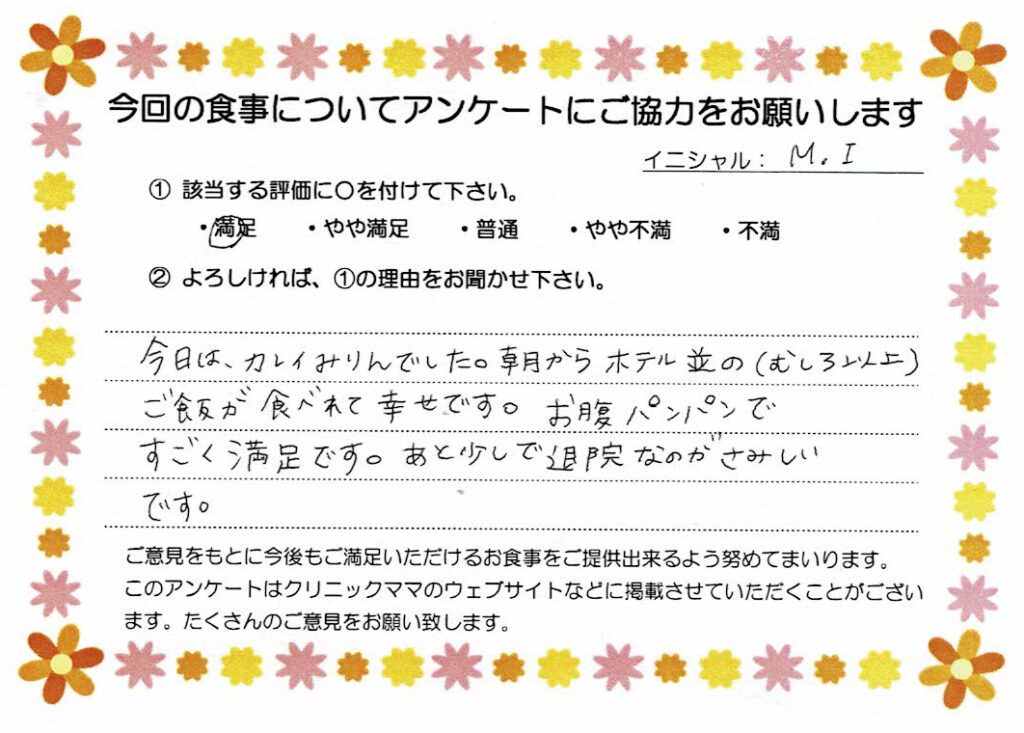 今回の食事についてアンケートにご協力をお願いします
イニシャル： M. I
① 該当する評価に〇を付けて下さい。
・満足 ・やや満足 ・普通 ・やや不満 ・不満
② よろしければ、①の理由をお聞かせ下さい。
今日は、カレイみりんでした。朝からホテル並の(むしろ以上)
ご飯が食べれて幸せです。お腹パンパンで
すごく満足です。あと少しで退院なのがさみしい
です。
ご意見をもとに今後もご満足いただけるお食事をご提供出来るよう努めてまいります。
このアンケートはクリニックママのウェブサイトなどに掲載させていただくことがござい
ます。たくさんのご意見をお願い致します。